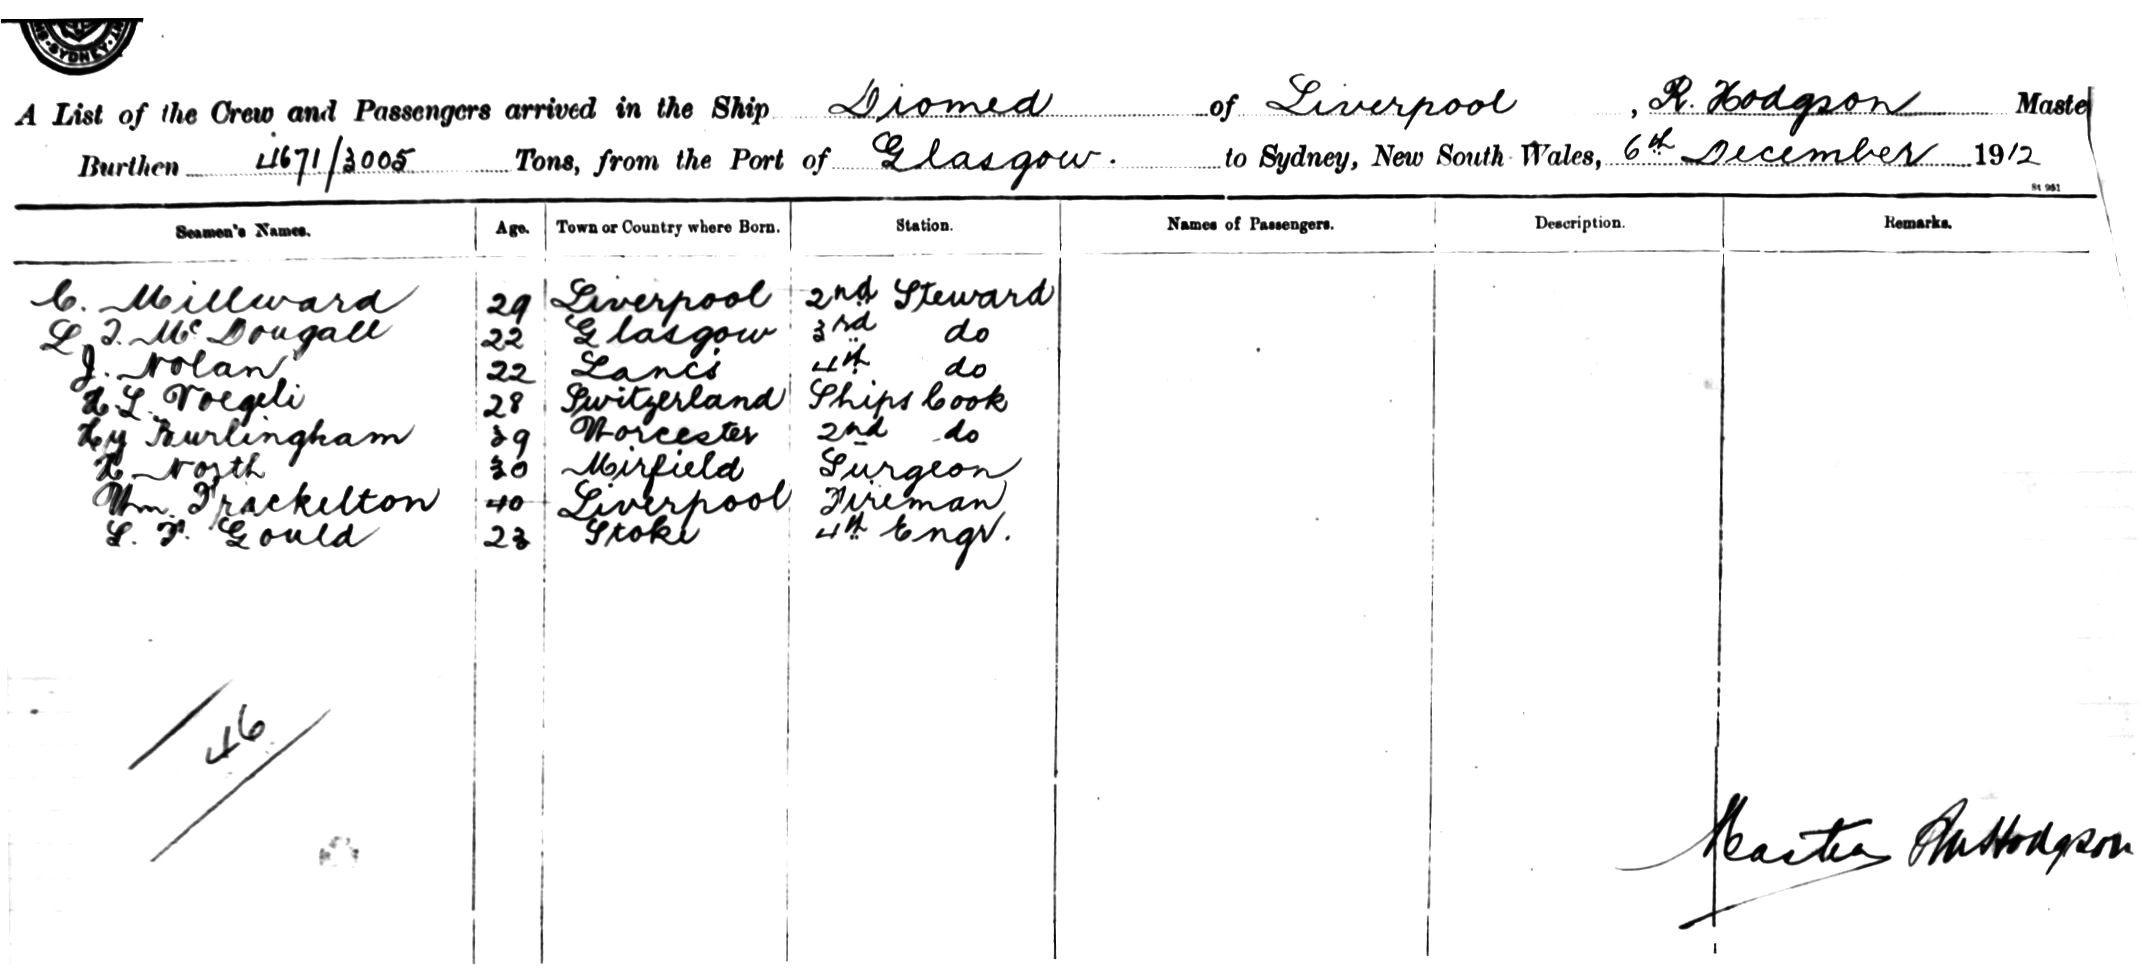 SYDNEY
A List of the Crew and Passengers arrived in the Ship Diomed of Liverpool, R. Hodgson Maste
Burthen 4671/3005 Tons, from the Port of Glasgow. to Sydney, New South Wales, 6th December 1912
St 951
Seamen's Names. Age. Town or Country where Born. Station. Names of Passengers. Description. Remarks.
C. Millward 29 Liverpool 2nd Steward
L. T. McDougall 22 Glasgow 3rd do
J. Nolan 22 Lancs 4th do
H. L. Voegeli 28 Switzerland Ships Cook
Hy Burlingham 39 Worcester 2nd do
H. North 30 Mirfield Surgeon
Wm. Frackelton 40 Liverpool Fireman
L. F. Gould 23 Stoke 4th Engr.
46
Master RM Hodgson